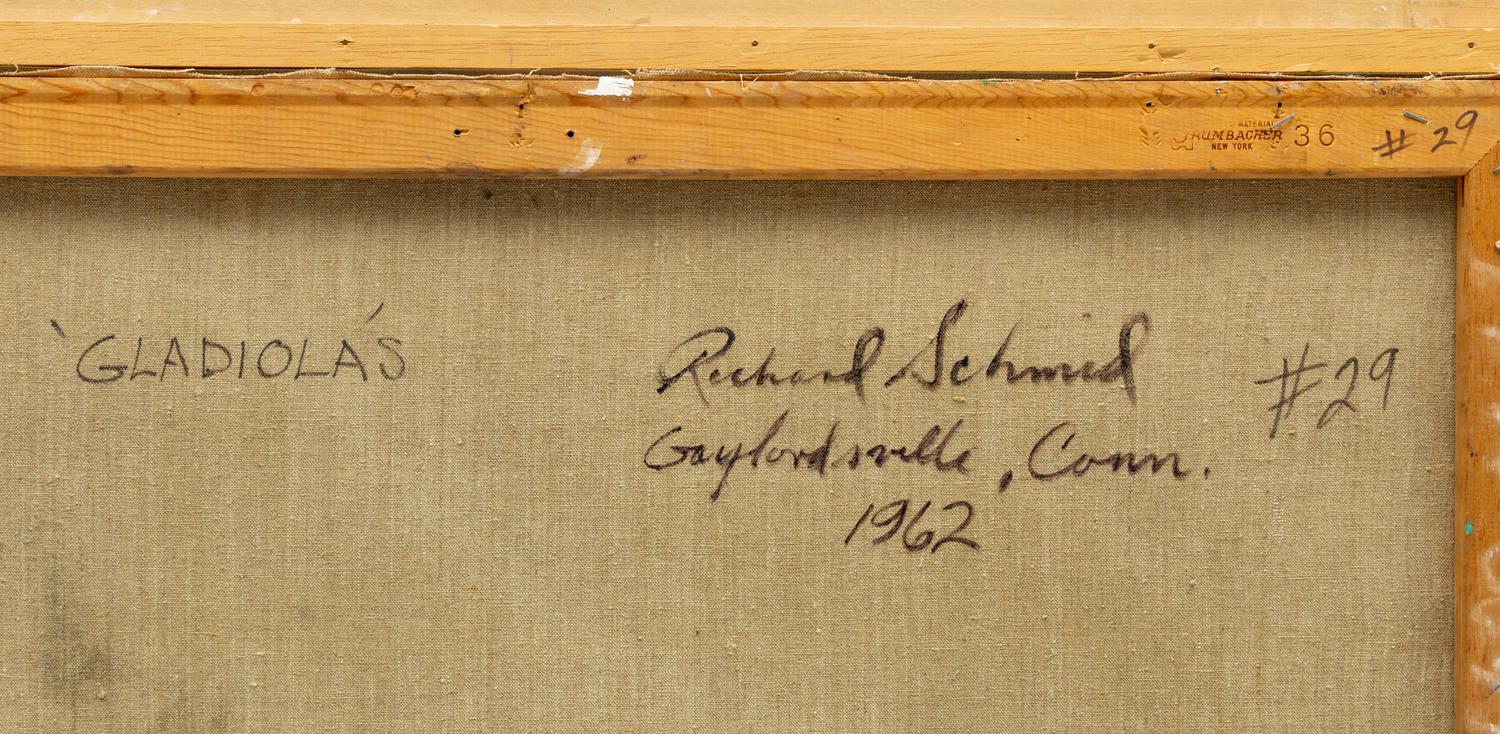 MATERIAL
GRUMBACHER 36 # 29
NEW YORK
'GLADIOLA'S' Richard Schmid #29
Gaylordsville, Conn.
1962